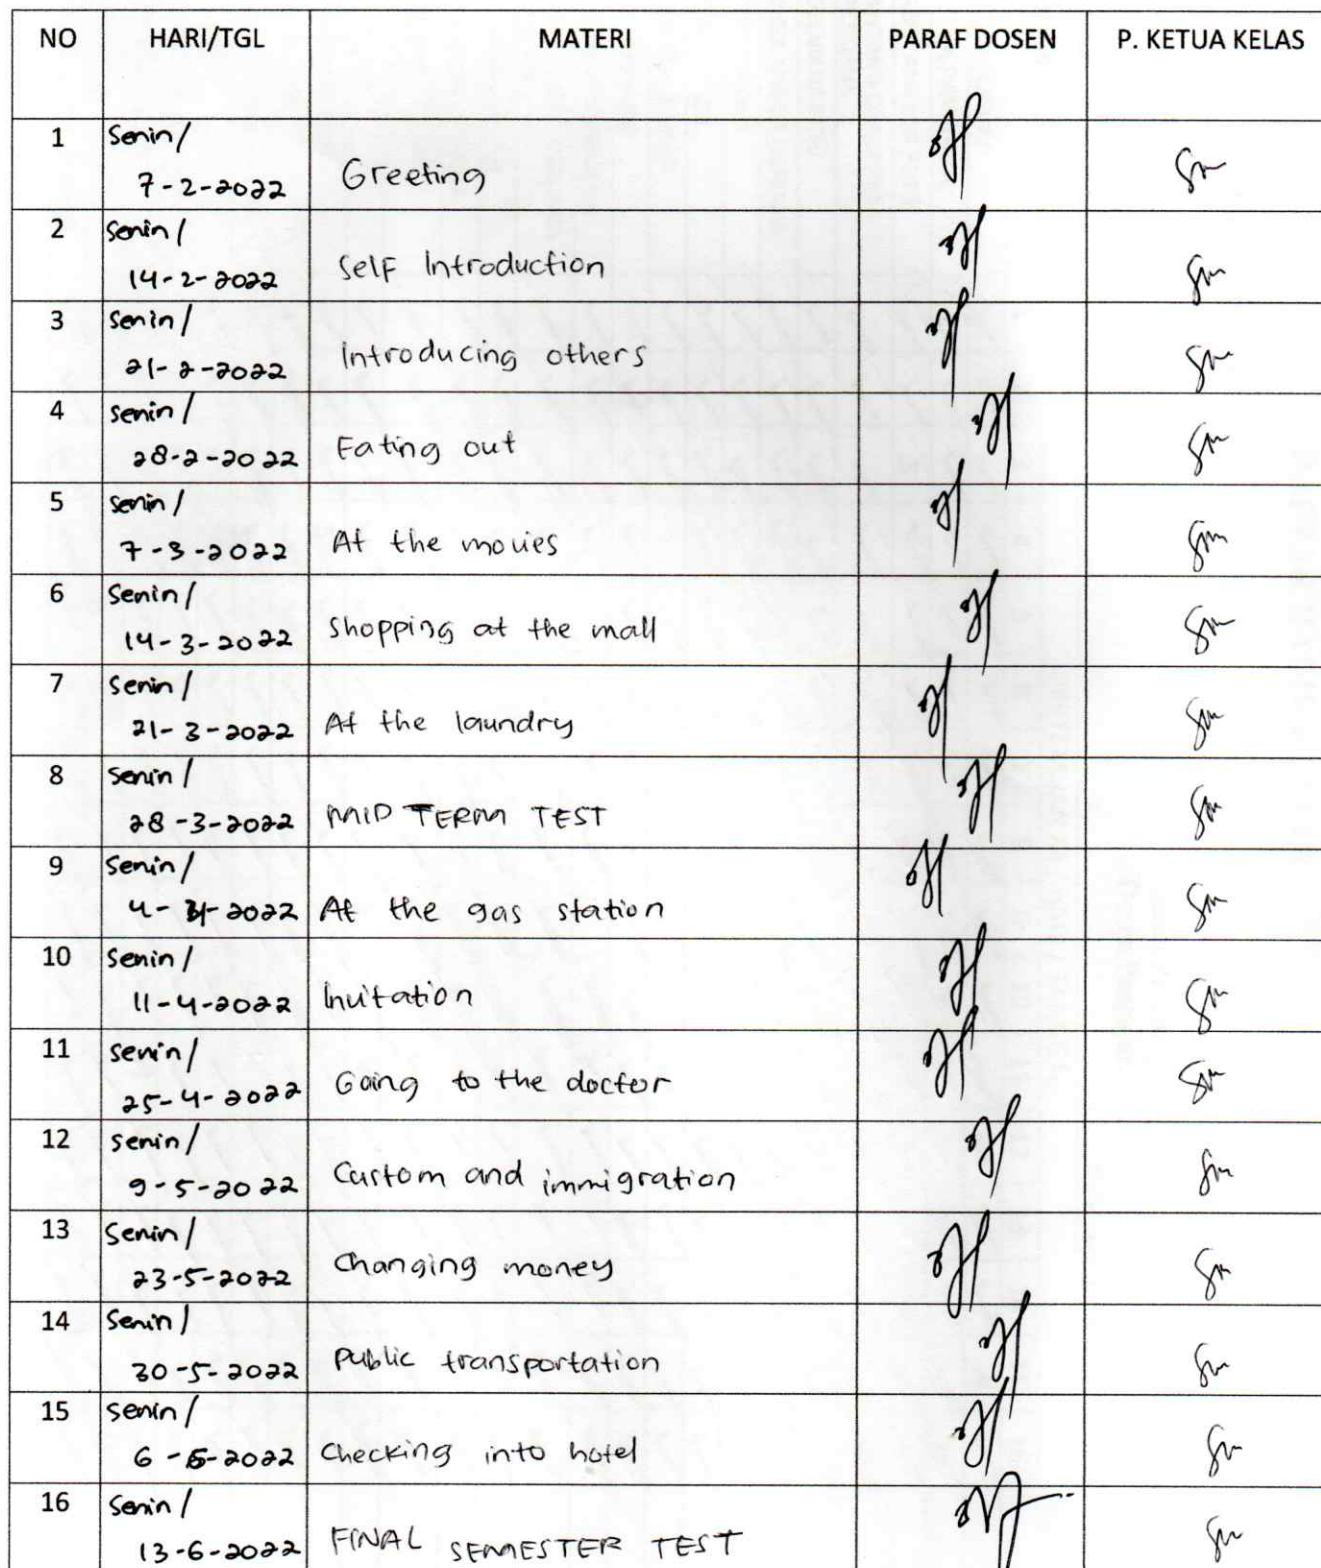 NO HARI/TGL MATERI PARAF DOSEN P. KETUA KELAS
1 Senin/
7-2-2022 Greeting
2 Senin/
14-2-2022 Self Introduction
3 Senin/
21-2-2022 Introducing others
4 Senin/
28-2-2022 Eating out
5 Senin/
7-3-2022 At the movies
6 Senin/
14-3-2022 Shopping at the mall
7 Senin/
21-3-2022 At the laundry
8 Senin/
28-3-2022 MID TERM TEST
9 Senin/
4-4-2022 At the gas station
10 Senin/
11-4-2022 Invitation
11 Senin/
25-4-2022 Going to the doctor
12 Senin/
9-5-2022 Custom and immigration
13 Senin/
23-5-2022 Changing money
14 Senin/
30-5-2022 Public transportation
15 Senin/
6-6-2022 Checking into hotel
16 Senin/
13-6-2022 FINAL SEMESTER TEST